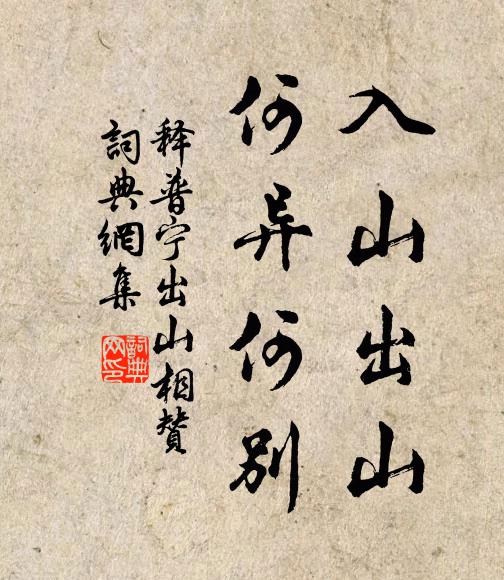 入山出山
何异何别
释普宁出山相赞
詞典網集
詞典网印